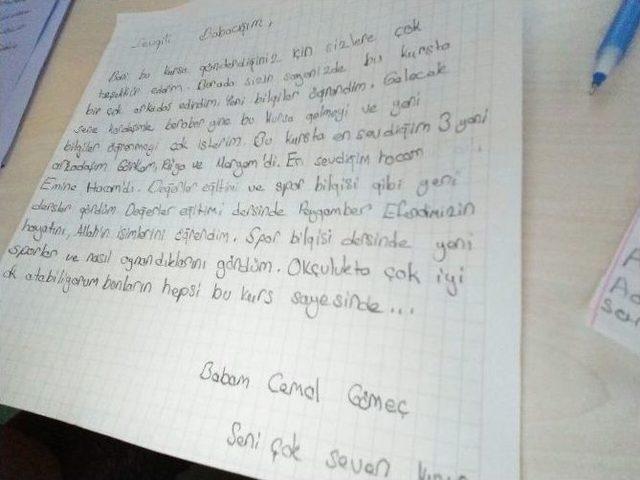 Sevgili Babacığım,
Beni bu kursa gönderdiğiniz için sizlere çok
teşekkür ederim. Burada sizin sayenizde bu kursta
bir çok arkadaş edindim. Yeni bilgiler öğrendim. Gelecek
sene kardeşimle beraber yine bu kursa gelmeyi ve yeni
bilgiler öğrenmeyi çok isterim. Bu kursta en sevdiğim 3 yeni
arkadaşım Görkem, ve Meryem'di. En sevdiğim hocam
Emine Hocamdı. Değerler eğitimi ve spor bilgisi gibi yeni
dersler gördüm Değerler eğitimi dersinde Peygamber Efendimizin
hayatını, Allah'ın isimlerini öğrendim. Spor bilgisi dersinde yeni
sporlar ve nasıl oynandıklarını gördüm. Okçulukta çok iyi
ok atabiliyorum bunların hepsi bu kurs sayesinde...
Babam Cemal Gömeç
Seni çok seven